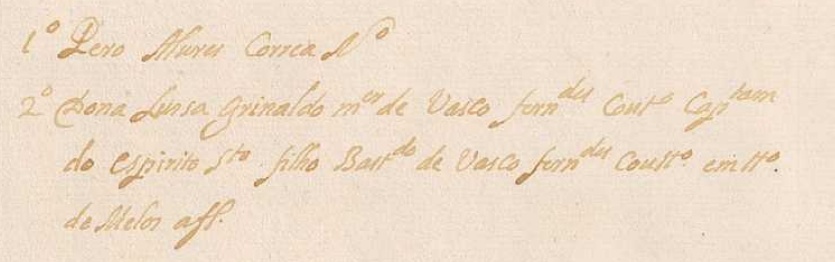 1º Pero Alures Correa Nº
2º Dona Luisa Grinaldo mᵉʳ de Vasco fernᵈᵉˢ Coutº Capᵗᵃᵐ
do espirito Sᵗᵒ filho Bastᵈᵒ de Vasco fernᵈᵉˢ Coutº em ttº.
de Melos afl.